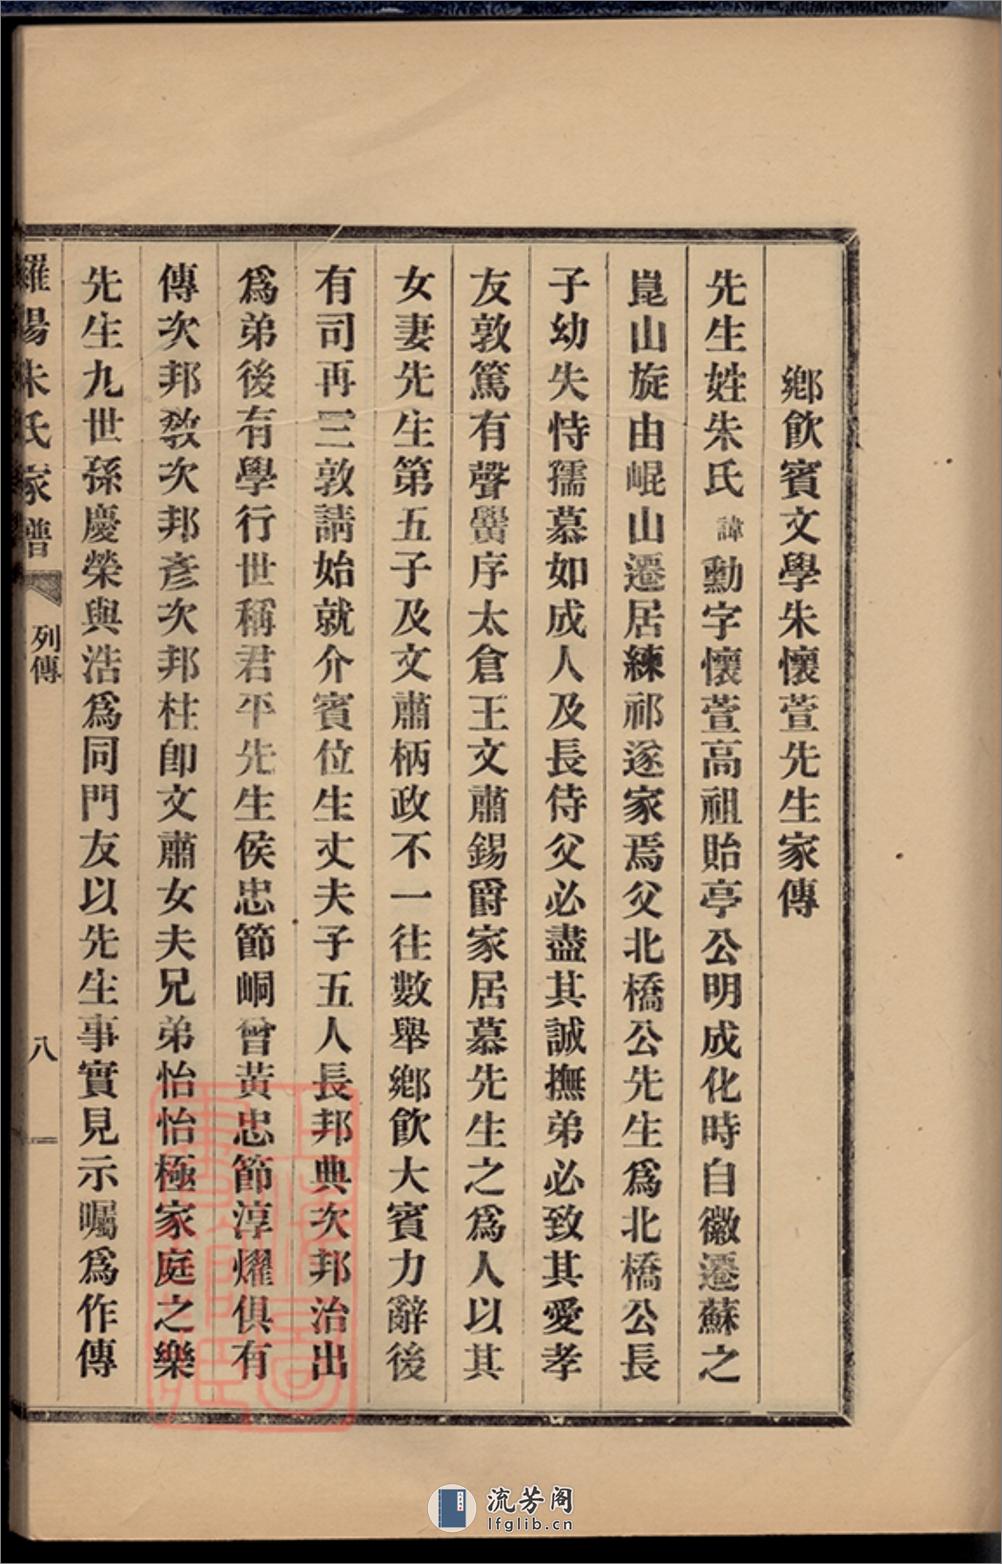 鄉飲賓文學朱懷萱先生家傳
先生姓朱氏諱勳字懷萱高祖貽亭公明成化時自徽遷蘇之
崑山旋由崐山遷居練祁遂家焉父北橋公先生爲北橋公長
子幼失恃孺慕如成人及長侍父必盡其誠撫弟必致其愛孝
友敦篤有聲黌序太倉王文肅錫爵家居慕先生之爲人以其
女妻先生第五子及文肅柄政不一往數舉鄉飲大賓力辭後
有司再三敦請始就介賓位生丈夫子五人長邦典次邦治出
爲弟後有學行世稱君平先生侯忠節峒曾黃忠節淳燿俱有
傳次邦敎次邦彥次邦柱卽文肅女夫兄弟怡怡極家庭之樂
先生九世孫慶榮與浩爲同門友以先生事實見示囑爲作傳
羅陽朱氏家譜
列傳
八
流芳阁
lfglib.cn